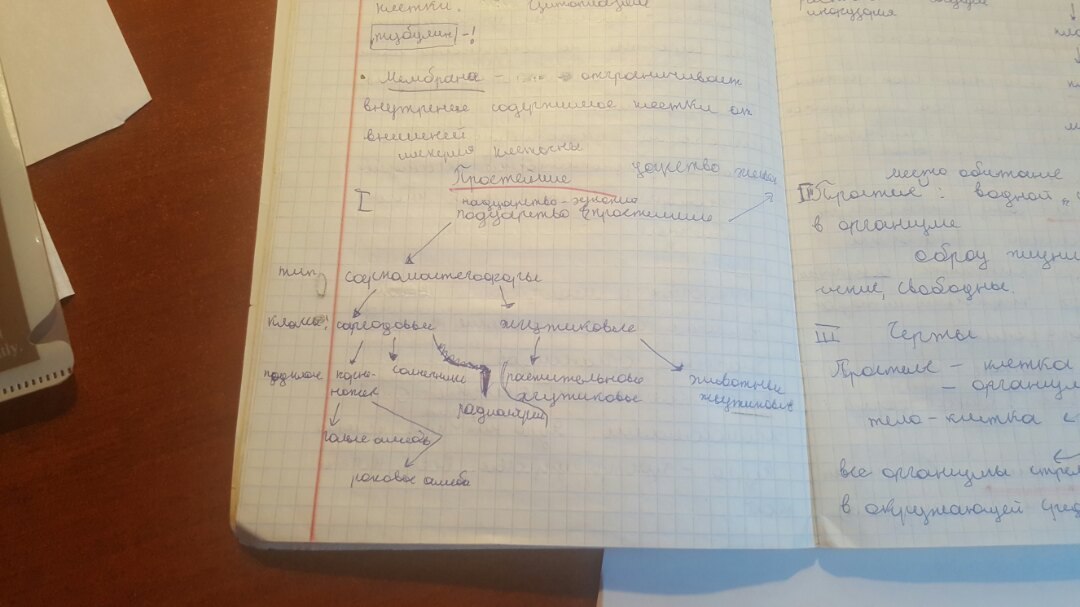 клетки. Цитоплазм
тубулин -!
• Мембрана - отграничивает
внутренее содержимое клетки от
внешней.
империя клеточны
Простейшие царство
I
надцарство-
подцарство простейшие
тип саркомастегофоры
класс: саркодовые жгутиковые
подкласс корне-
ножек солнечники растительновые
жгутиковые животные
жгутиковые
радиолярии
голые амебы
раковые амеба
инфузория
место обитание
II Простые: водной
в организме
образ жизни
свободны.
III Черты
Простые - клетка
- организм
тело-клетка
все организмы
в окружающей сред